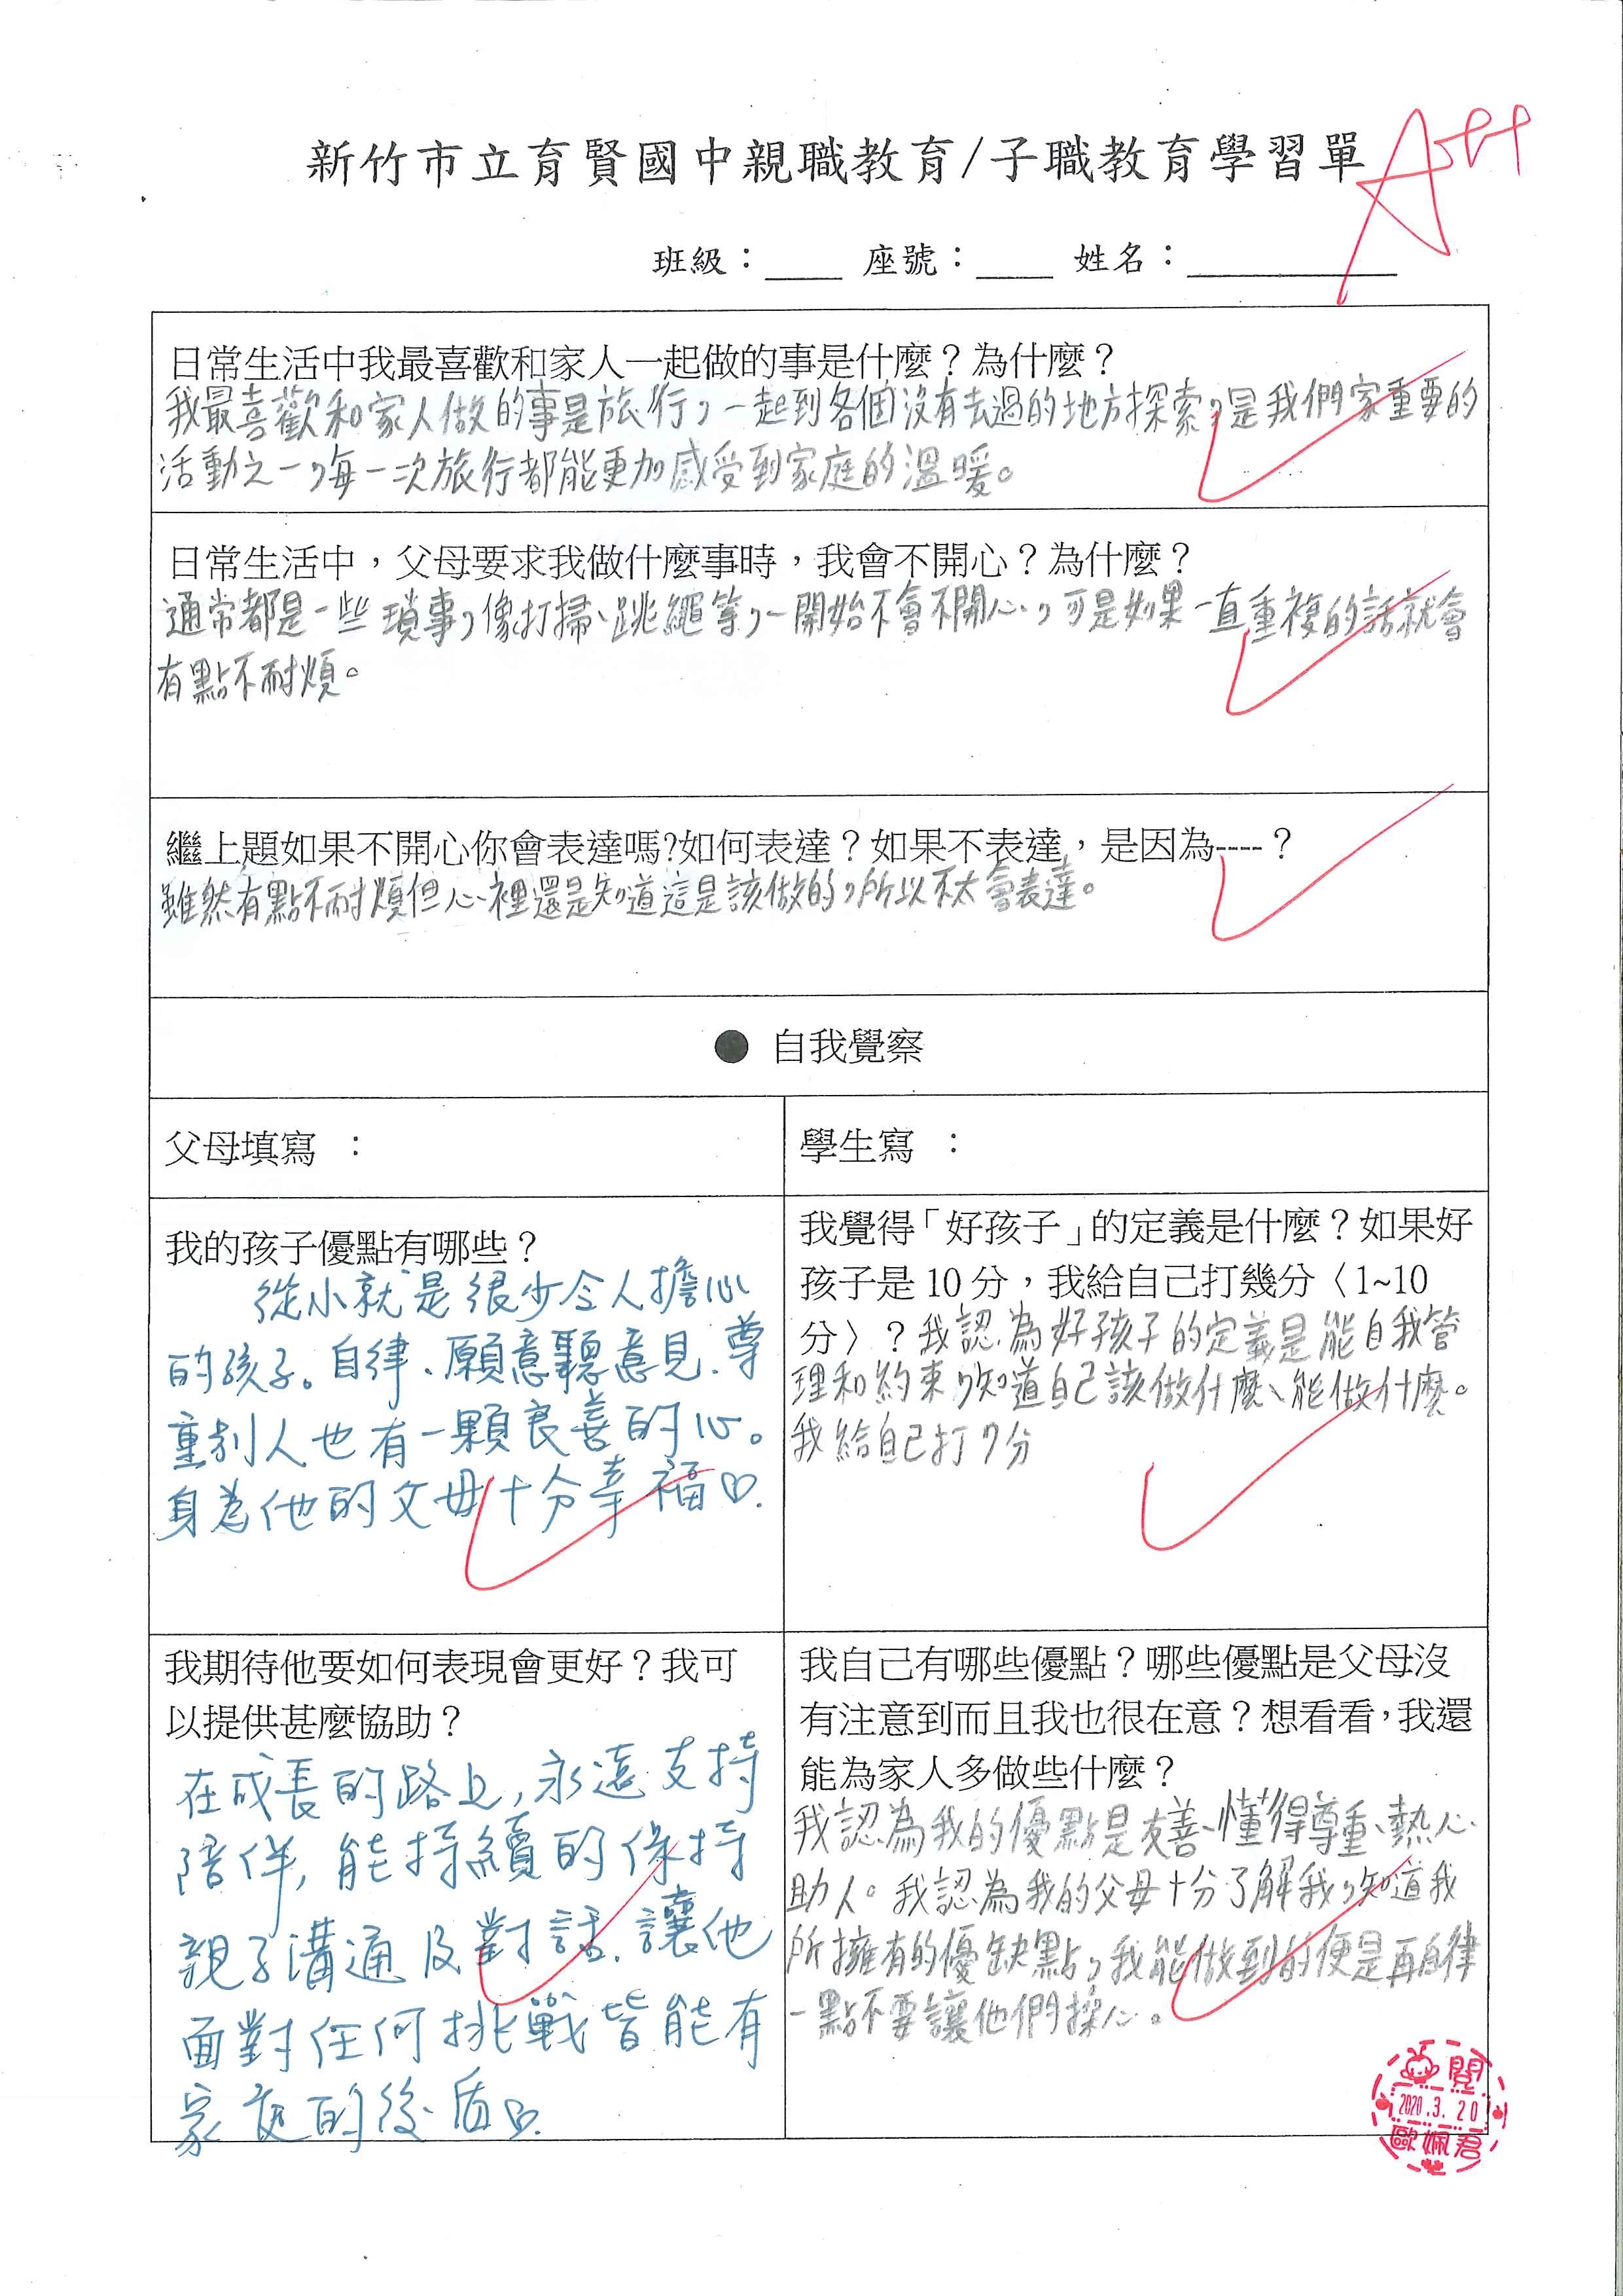 新竹市立育賢國中親職教育/子職教育學習單
A++
班級：____ 座號：____ 姓名：__________
日常生活中我最喜歡和家人一起做的事是什麼？為什麼？
我最喜歡和家人做的事是旅行，一起到各個沒有去過的地方探索，是我們家重要的
活動之一，每一次旅行都能更加感受到家庭的溫暖。
日常生活中，父母要求我做什麼事時，我會不開心？為什麼？
通常都是一些瑣事，像打掃、跳繩等，一開始不會不開心，可是如果一直重複的話就會
有點不耐煩。
繼上題如果不開心你會表達嗎?如何表達？如果不表達，是因為----？
雖然有點不耐煩但心裡還是知道這是該做的，所以不太會表達。
● 自我覺察
父母填寫 ：
學生寫 ：
我的孩子優點有哪些？
從小就是很少令人擔心
的孩子。自律、願意聽意見、尊
重別人也有一顆良善的心。
身為他的父母十分幸福♡.
我覺得「好孩子」的定義是什麼？如果好
孩子是 10 分，我給自己打幾分〈1~10
分〉？我認為好孩子的定義是能自我管
理和約束，知道自己該做什麼、能做什麼。
我給自己打7分
我期待他要如何表現會更好？我可
以提供甚麼協助？
在成長的路上,永遠支持
陪伴,能持續的保持
親子溝通及對話.讓他
面對任何挑戰皆能有
家庭的後盾♡.
我自己有哪些優點？哪些優點是父母沒
有注意到而且我也很在意？想看看，我還
能為家人多做些什麼？
我認為我的優點是友善、懂得尊重、熱心
助人。我認為我的父母十分了解我，知道我
所擁有的優缺點，我能做到的便是再自律
一點不要讓他們操心。
閱
2020.3.20
歐姵君